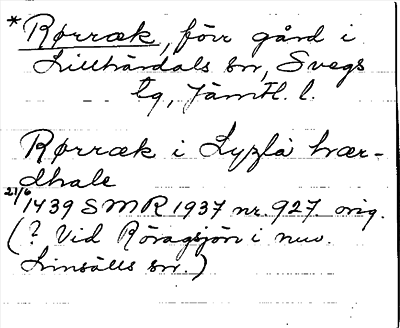 * Rørræk, förr gård i
Lillhärdals sn, Svegs
tg, Jämtl. l.
Rørræk i Lyzla hær-
dhale
21/6
1439 SMR 1937 nr. 927. orig.
(? Vid Röragsjön i nuv.
Linsälls sn.)